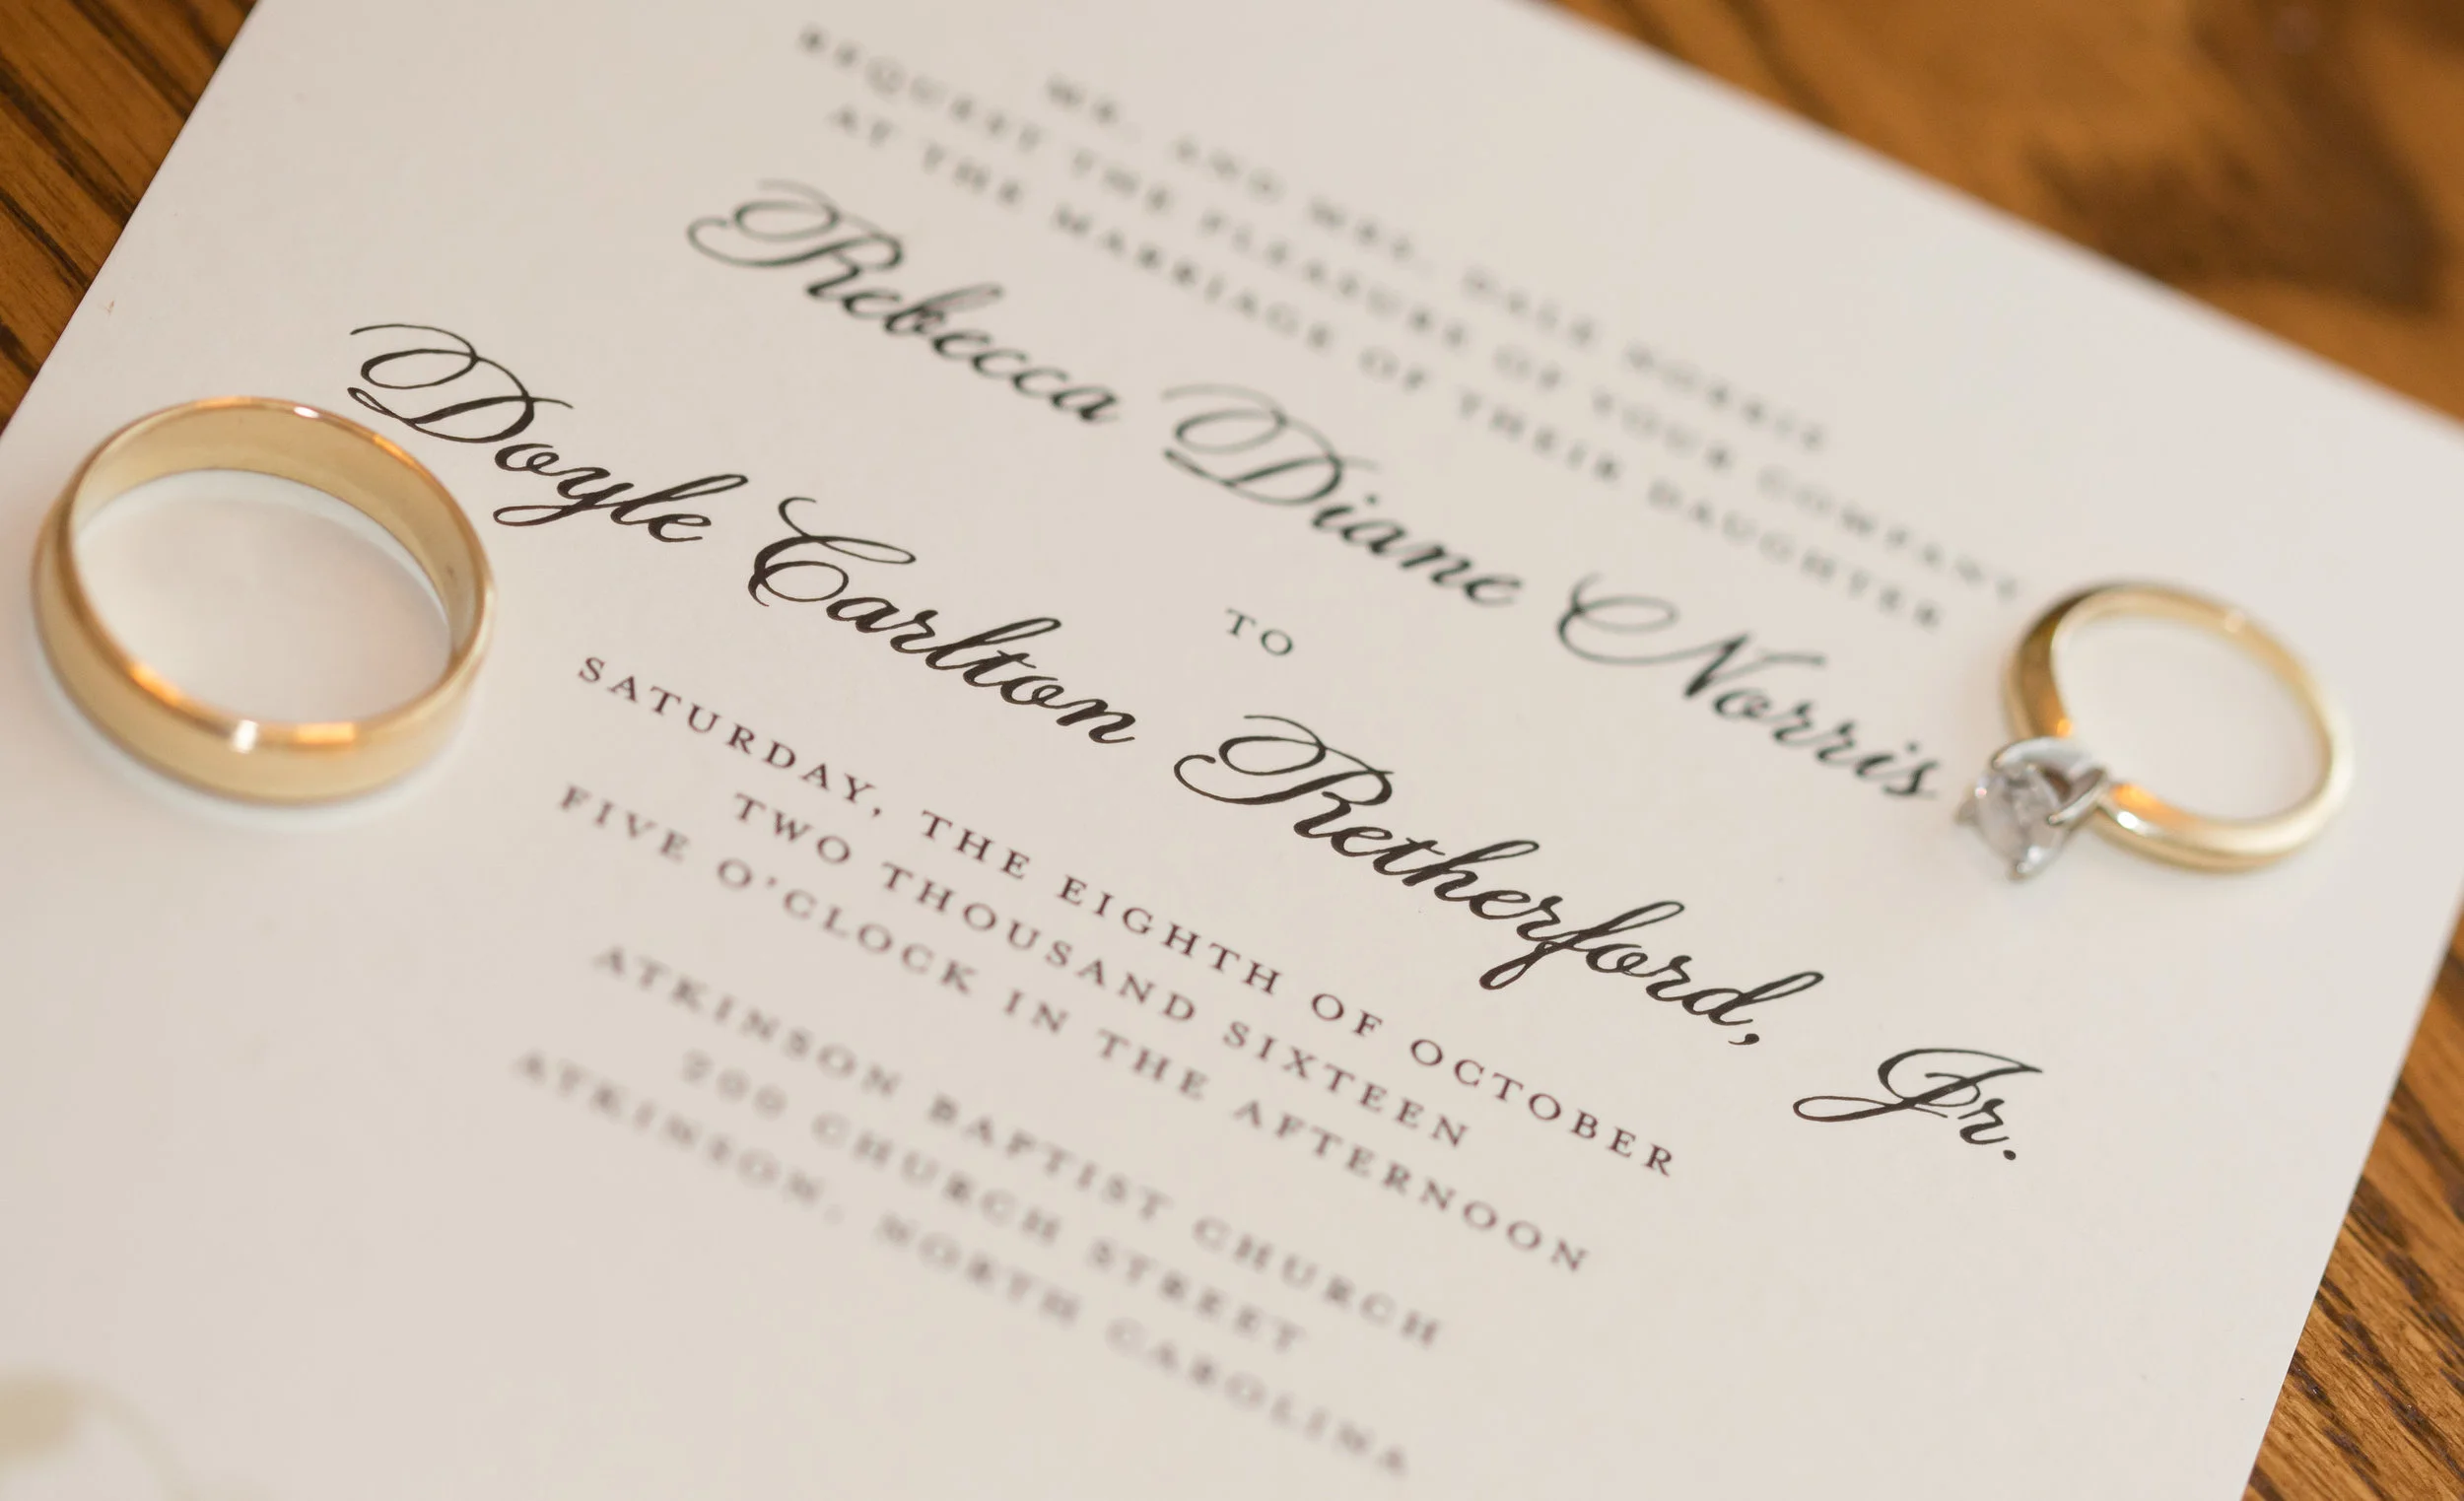 MR. AND MRS. DALE NORRIS
REQUEST THE PLEASURE OF YOUR COMPANY
AT THE MARRIAGE OF THEIR DAUGHTER
Rebecca Diane Norris
TO
Doyle Carlton Retherford, Jr.
SATURDAY, THE EIGHTH OF OCTOBER
TWO THOUSAND SIXTEEN
FIVE O'CLOCK IN THE AFTERNOON
ATKINSON BAPTIST CHURCH
200 CHURCH STREET
ATKINSON, NORTH CAROLINA